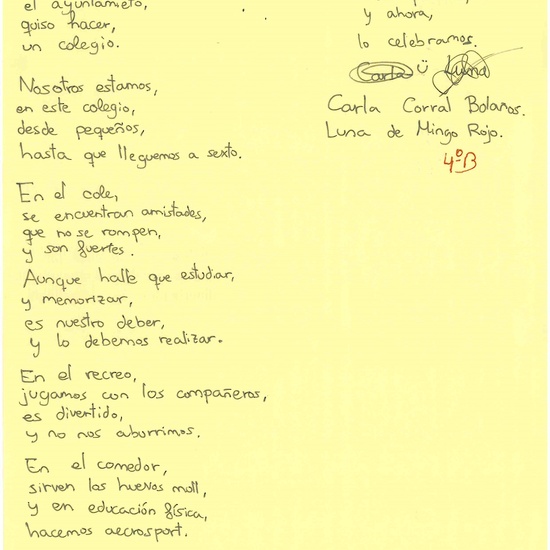 el ayuntamiento,
quiso hacer,
un colegio.
Nosotros estamos,
en este colegio,
desde pequeños,
hasta que lleguemos a sexto.
En el cole,
se encuentran amistades,
que no se rompen,
y son fuertes.
Aunque halle que estudiar,
y memorizar,
es nuestro deber,
y lo debemos realizar.
En el recreo,
jugamos con los compañeros,
es divertido,
y no nos aburrimos.
En el comedor,
sirven los huevos moll,
y en educación física,
hacemos aecrosport.
y ahora,
lo celebramos.
Carla Luna
Carla Corral Bolaños.
Luna de Mingo Rojo.
4ºB